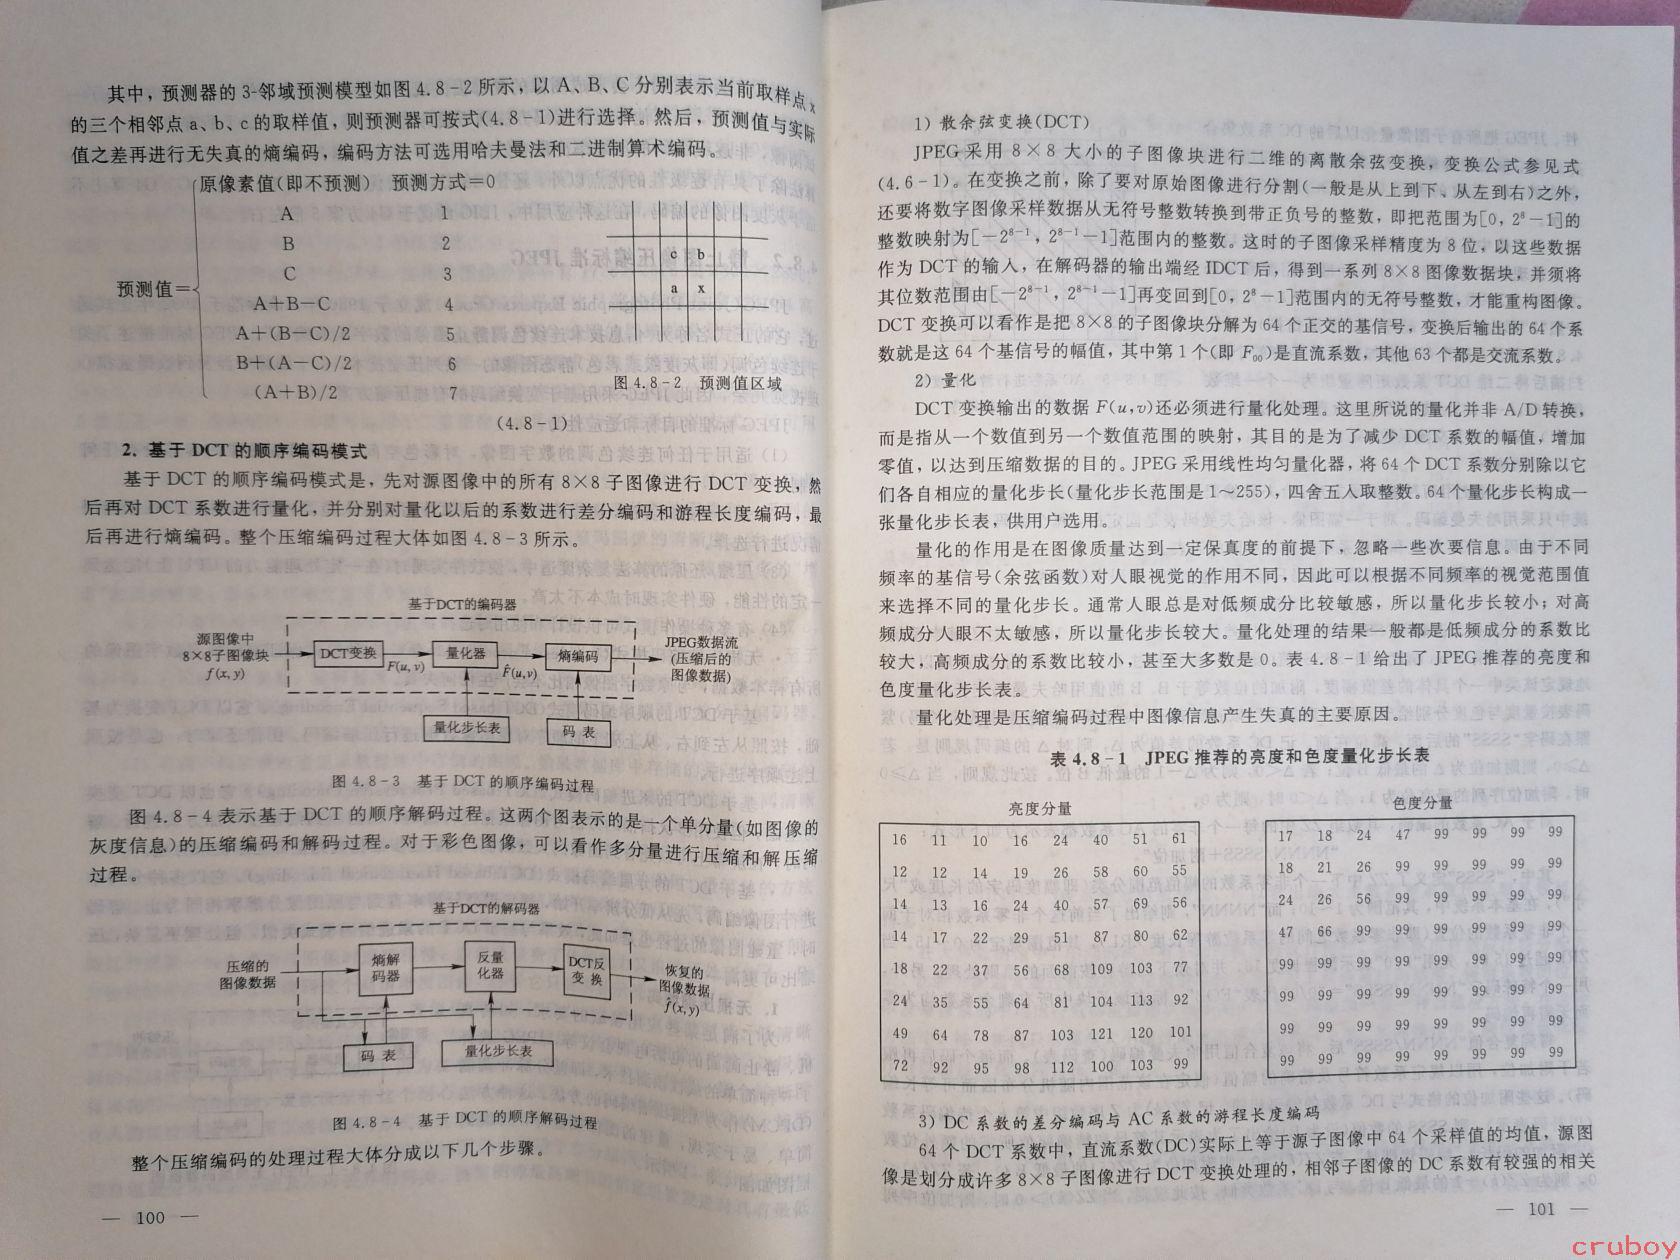 其中，预测器的 3-邻域预测模型如图 4.8-2 所示，以 A、B、C 分别表示当前取样点 x
的三个相邻点 a、b、c 的取样值，则预测器可按式(4.8-1)进行选择。然后，预测值与实际
值之差再进行无失真的熵编码，编码方法可选用哈夫曼法和二进制算术编码。
预测值=
原像素值(即不预测) 预测方式=0
A 1
B 2
C 3
A+B-C 4
A+(B-C)/2 5
B+(A-C)/2 6
(A+B)/2 7
c b
a x
图 4.8-2 预测值区域
(4.8-1)
2. 基于 DCT 的顺序编码模式
基于 DCT 的顺序编码模式是，先对源图像中的所有 8×8 子图像进行 DCT 变换，然
后再对 DCT 系数进行量化，并分别对量化以后的系数进行差分编码和游程长度编码，最
后再进行熵编码。整个压缩编码过程大体如图 4.8-3 所示。
基于DCT的编码器
源图像中
8×8子图像块
f(x, y)
DCT变换
F(u, v)
量化器
F̂(u, v)
熵编码
JPEG数据流
(压缩后的
图像数据)
量化步长表
码 表
图 4.8-3 基于 DCT 的顺序编码过程
图 4.8-4 表示基于 DCT 的顺序解码过程。这两个图表示的是一个单分量(如图像的
灰度信息)的压缩编码和解码过程。对于彩色图像，可以看作多分量进行压缩和解压缩
过程。
基于DCT的解码器
压缩的
图像数据
熵解
码器
反量
化器
DCT反
变 换
恢复的
图像数据
f̂(x, y)
码 表
量化步长表
图 4.8-4 基于 DCT 的顺序解码过程
整个压缩编码的处理过程大体分成以下几个步骤。
— 100 —
1) 散余弦变换(DCT)
JPEG 采用 8×8 大小的子图像块进行二维的离散余弦变换，变换公式参见式
(4.6-1)。在变换之前，除了要对原始图像进行分割(一般是从上到下、从左到右)之外，
还要将数字图像采样数据从无符号整数转换到带正负号的整数，即把范围为[0, 2⁸-1]的
整数映射为[-2⁸⁻¹, 2⁸⁻¹-1]范围内的整数。这时的子图像采样精度为 8 位，以这些数据
作为 DCT 的输入，在解码器的输出端经 IDCT 后，得到一系列 8×8 图像数据块，并须将
其位数范围由[-2⁸⁻¹, 2⁸⁻¹-1]再变回到[0, 2⁸-1]范围内的无符号整数，才能重构图像。
DCT 变换可以看作是把 8×8 的子图像块分解为 64 个正交的基信号，变换后输出的 64 个系
数就是这 64 个基信号的幅值，其中第 1 个(即 F₀₀)是直流系数，其他 63 个都是交流系数。
2) 量化
DCT 变换输出的数据 F(u,v)还必须进行量化处理。这里所说的量化并非 A/D 转换，
而是指从一个数值到另一个数值范围的映射，其目的是为了减少 DCT 系数的幅值，增加
零值，以达到压缩数据的目的。JPEG 采用线性均匀量化器，将 64 个 DCT 系数分别除以它
们各自相应的量化步长(量化步长范围是 1～255)，四舍五入取整数。64 个量化步长构成一
张量化步长表，供用户选用。
量化的作用是在图像质量达到一定保真度的前提下，忽略一些次要信息。由于不同
频率的基信号(余弦函数)对人眼视觉的作用不同，因此可以根据不同频率的视觉范围值
来选择不同的量化步长。通常人眼总是对低频成分比较敏感，所以量化步长较小；对高
频成分人眼不太敏感，所以量化步长较大。量化处理的结果一般都是低频成分的系数比
较大，高频成分的系数比较小，甚至大多数是 0。表 4.8-1 给出了 JPEG 推荐的亮度和
色度量化步长表。
量化处理是压缩编码过程中图像信息产生失真的主要原因。
表 4.8-1 JPEG 推荐的亮度和色度量化步长表
亮度分量
16 11 10 16 24 40 51 61
12 12 14 19 26 58 60 55
14 13 16 24 40 57 69 56
14 17 22 29 51 87 80 62
18 22 37 56 68 109 103 77
24 35 55 64 81 104 113 92
49 64 78 87 103 121 120 101
72 92 95 98 112 100 103 99
色度分量
17 18 24 47 99 99 99 99
18 21 26 99 99 99 99 99
24 26 56 99 99 99 99 99
47 66 99 99 99 99 99 99
99 99 99 99 99 99 99 99
99 99 99 99 99 99 99 99
99 99 99 99 99 99 99 99
99 99 99 99 99 99 99 99
3) DC 系数的差分编码与 AC 系数的游程长度编码
64 个 DCT 系数中，直流系数(DC)实际上等于源子图像中 64 个采样值的均值，源图
像是划分成许多 8×8 子图像进行 DCT 变换处理的，相邻子图像的 DC 系数有较强的相关
— 101 —
cruboy